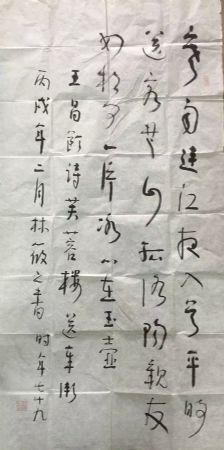 寒雨連江夜入吳平明
送客楚山孤洛陽親友
如相問一片冰心在玉壺
王昌齡詩芙蓉樓送辛漸
丙戌年二月林筱之書時年七十九